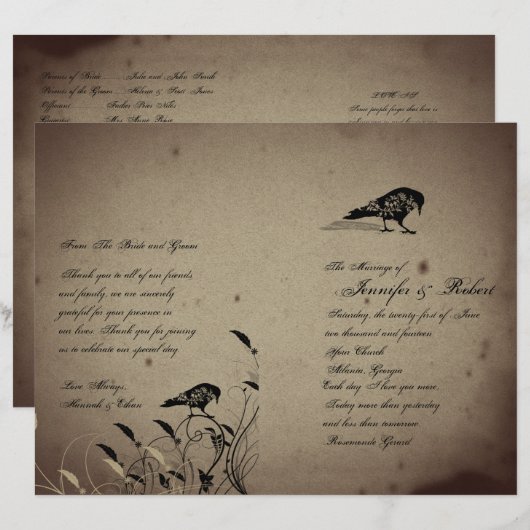 Parents of Bride........Julie and John Smith
Parents of the Groom....Helena & Scott Jones
Officiant............Father Pries Niles
Mrs. Anne Rose
LOVE IS
Some people forget that love is
From The Bride and Groom
Thank you to all of our friends
and family, we are sincerely
grateful for your presence in
our lives. Thank you for joining
us to celebrate our special day.
Love Always,
Hannah & Ethan
The Marriage of
Jennifer & Robert
Saturday, the twenty-first of , June
two thousand and fourteen
Your Church
Atlanta, Georgia
Each day I love you more,
Today more than yesterday
and less than tomorrow.
Rosemonde Gerard